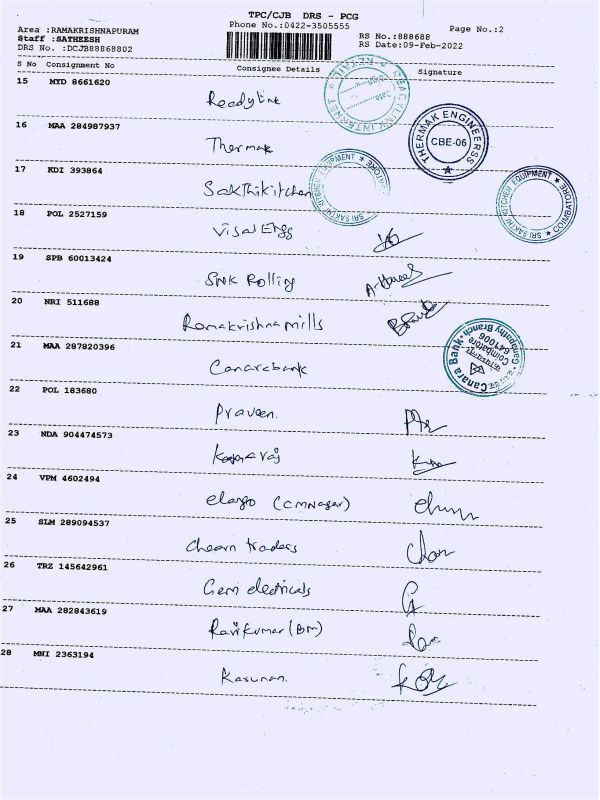 TPC/CJB DRS - PCG
Phone No.:0422-3505555
Page No.:2
Area :RAMAKRISHNAPURAM
Staff :SATHEESH
DRS No. :DCJB88868802
RS No.:888688
RS Date:09-Feb-2022
S No Consignment No Consignee Details Signature
15 MYD 8661620
Readylink
16 MAA 284987937
Thermak
THERMAK ENGINEERSS
CBE-06
17 KDI 393864
Sakthikitchen
SRI SAKTHI KITCHEN EQUIPMENT COIMBATORE
18 POL 2527159
Visal Engg
19 SPB 60013424
SMK Rolling
20 NRI 511688
Ramakrishna mills
21 MAA 287820396
Canarabank
Canara Bank
Ganapathy Branch
Coimbatore
641006
22 POL 183680
Praveen.
23 NDA 904474573
24 VPM 4602494
elango (CMNagar)
25 SLM 289094537
Cheran traders
26 TRZ 145642961
Gem electricals
27 MAA 282843619
Ravikumar (BM)
28 MNI 2363194
Karunan.